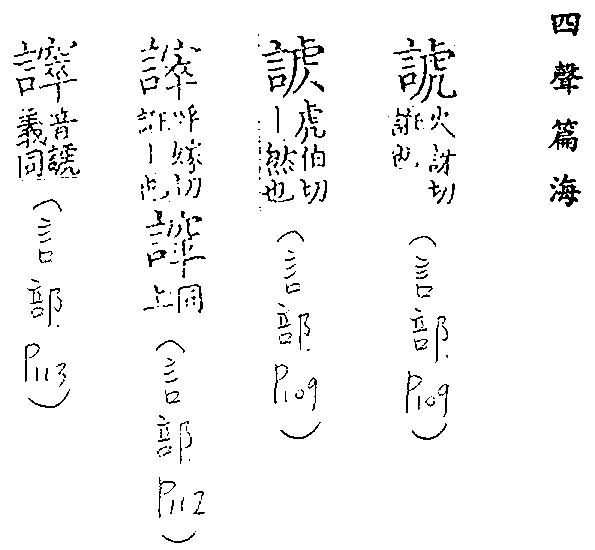 四聲篇海
諕 火訝切 (言部.P109)
虎伯切丨然也 (言部.P109)
呼嫁切 上同 (言部.P112)
音諕義同 (言部.P113)